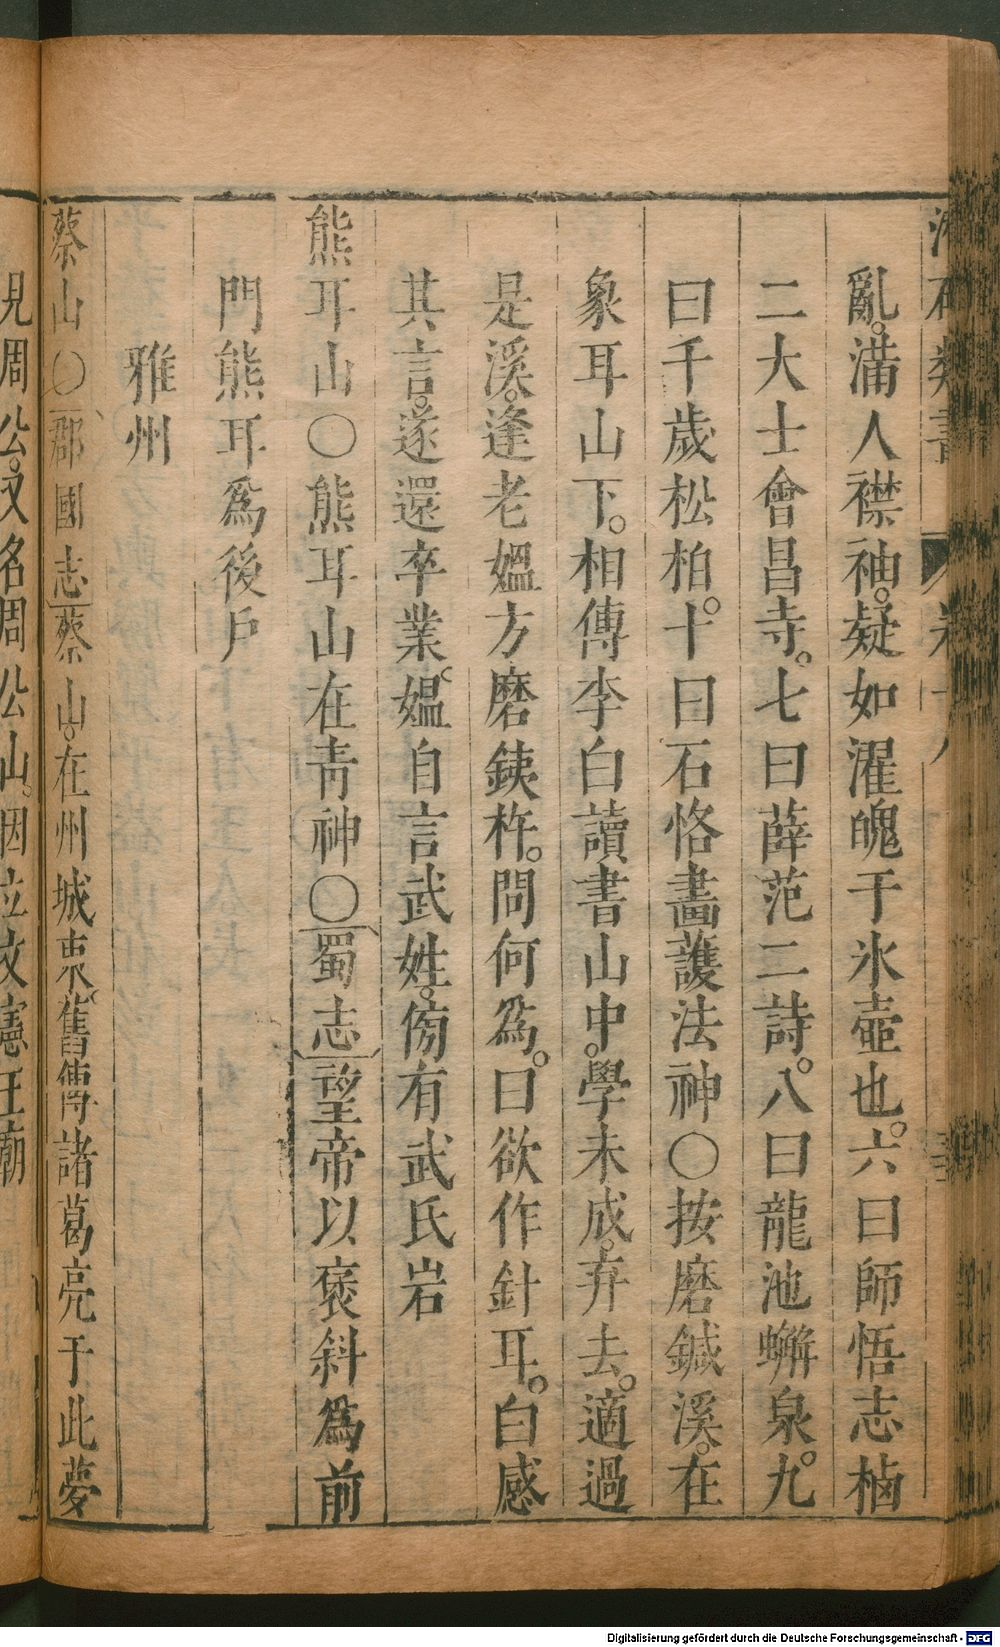 亂。滿人襟袖。疑如濯魄于氷壺也。六曰師悟志楠
二大士會昌寺。七曰薛范二詩。八曰龍池蠏泉。九
曰千歲松柏。十曰石恪畵護法神○按磨鍼溪。在
象耳山下。相傳李白讀書山中。學未成。弃去。適過
是溪。逢老媼方磨銕杵。問何爲。曰欲作針耳。白感
其言。遂還卒業。媼自言武姓。傍有武氏岩
熊耳山○熊耳山在青神○蜀志望帝以褒斜爲前
門熊耳爲後戶
雅州
蔡山○郡國志蔡山。在州城東。舊傳諸葛亮于此夢
見周公。又名周公山。因立文憲王廟
Digitalisierung gefördert durch die Deutsche Forschungsgemeinschaft - DFG